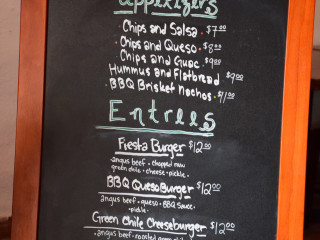 Appetizers
• Chips and Salsa • $7.00
• Chips and Queso • $8.00
Chips and Guac • $9.00
Hummus and Flatbread • $9.00
• BBQ Brisket Nachos • $11.00
Entrees
Fiesta Burger $12.00
• angus beef • chopped
green chile • cheese • pickle •
BBQ Queso Burger $12.00
angus beef • queso • BBQ Sauce •
• pickle •
Green Chile Cheeseburger $12.00
• angus beef • roasted green chile